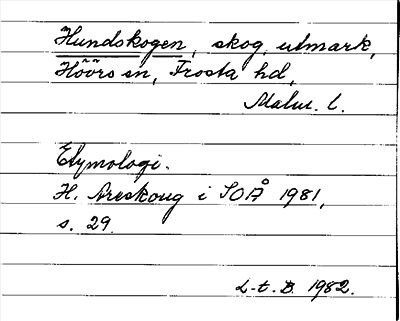 Hundskogen, skog, utmark,
Höörs sn, Frosta hd,
Malm. l.
Etymologi.
H. Areskoug i SOÅ 1981,
s. 29
L-t. B. 1982.